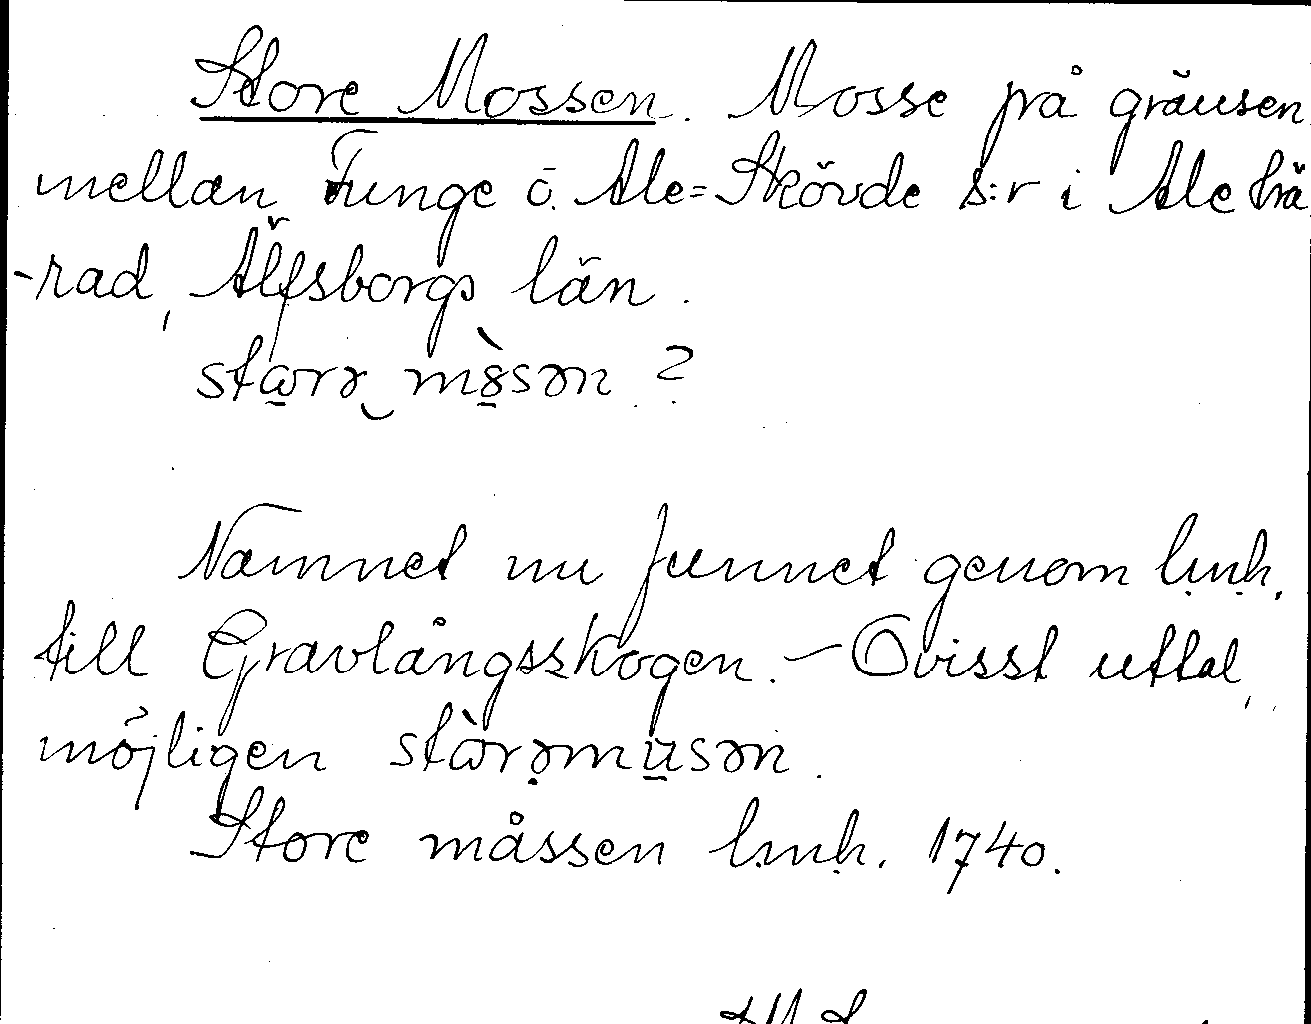 Store Mossen. Mosse på gränsen
mellan Tunge o. Ale=Skövde s:r i Ale hä
-rad, Älfsborgs län.
stωrə mòsən ?
Namnet nu funnet genom lmh.
till Gravlångsskogen. — Ovisst uttal,
möjligen stὼrəmusən.
Store måssen lmh. 1740.